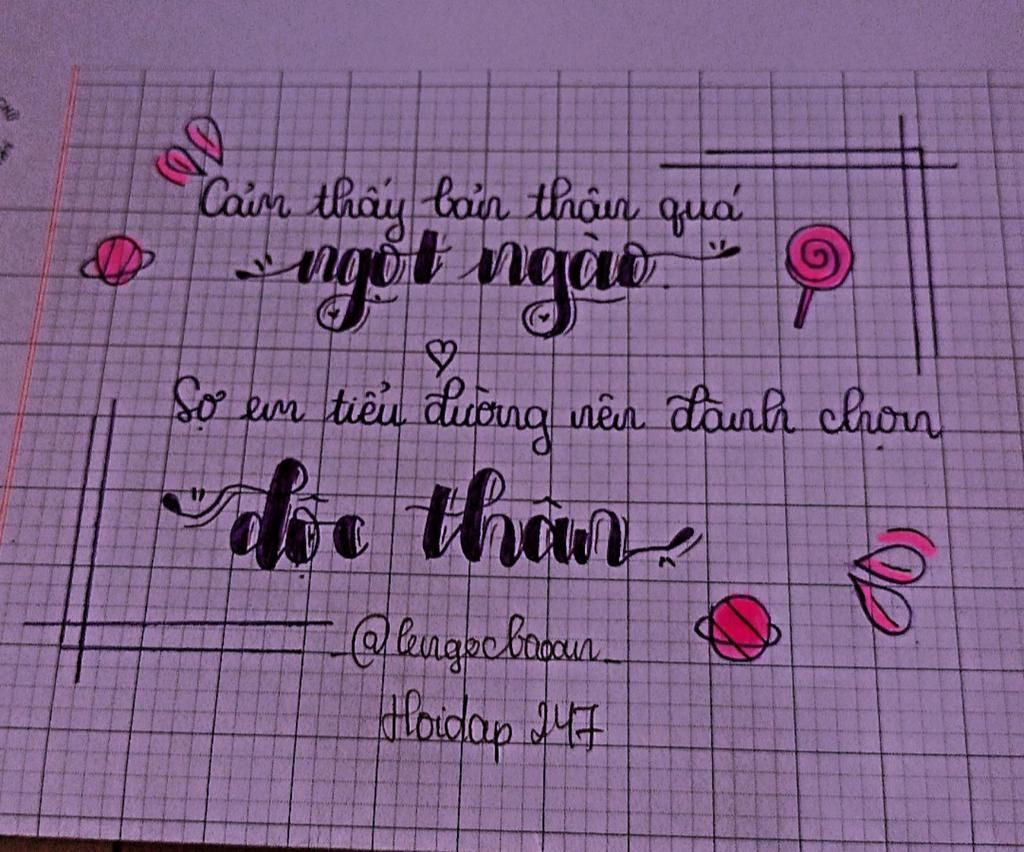 Cảm thấy bản thân quá
ngọt ngào
Sợ em tiểu đường nên đành chọn
độc thân
@lengocbaoan_
Hoidap 247